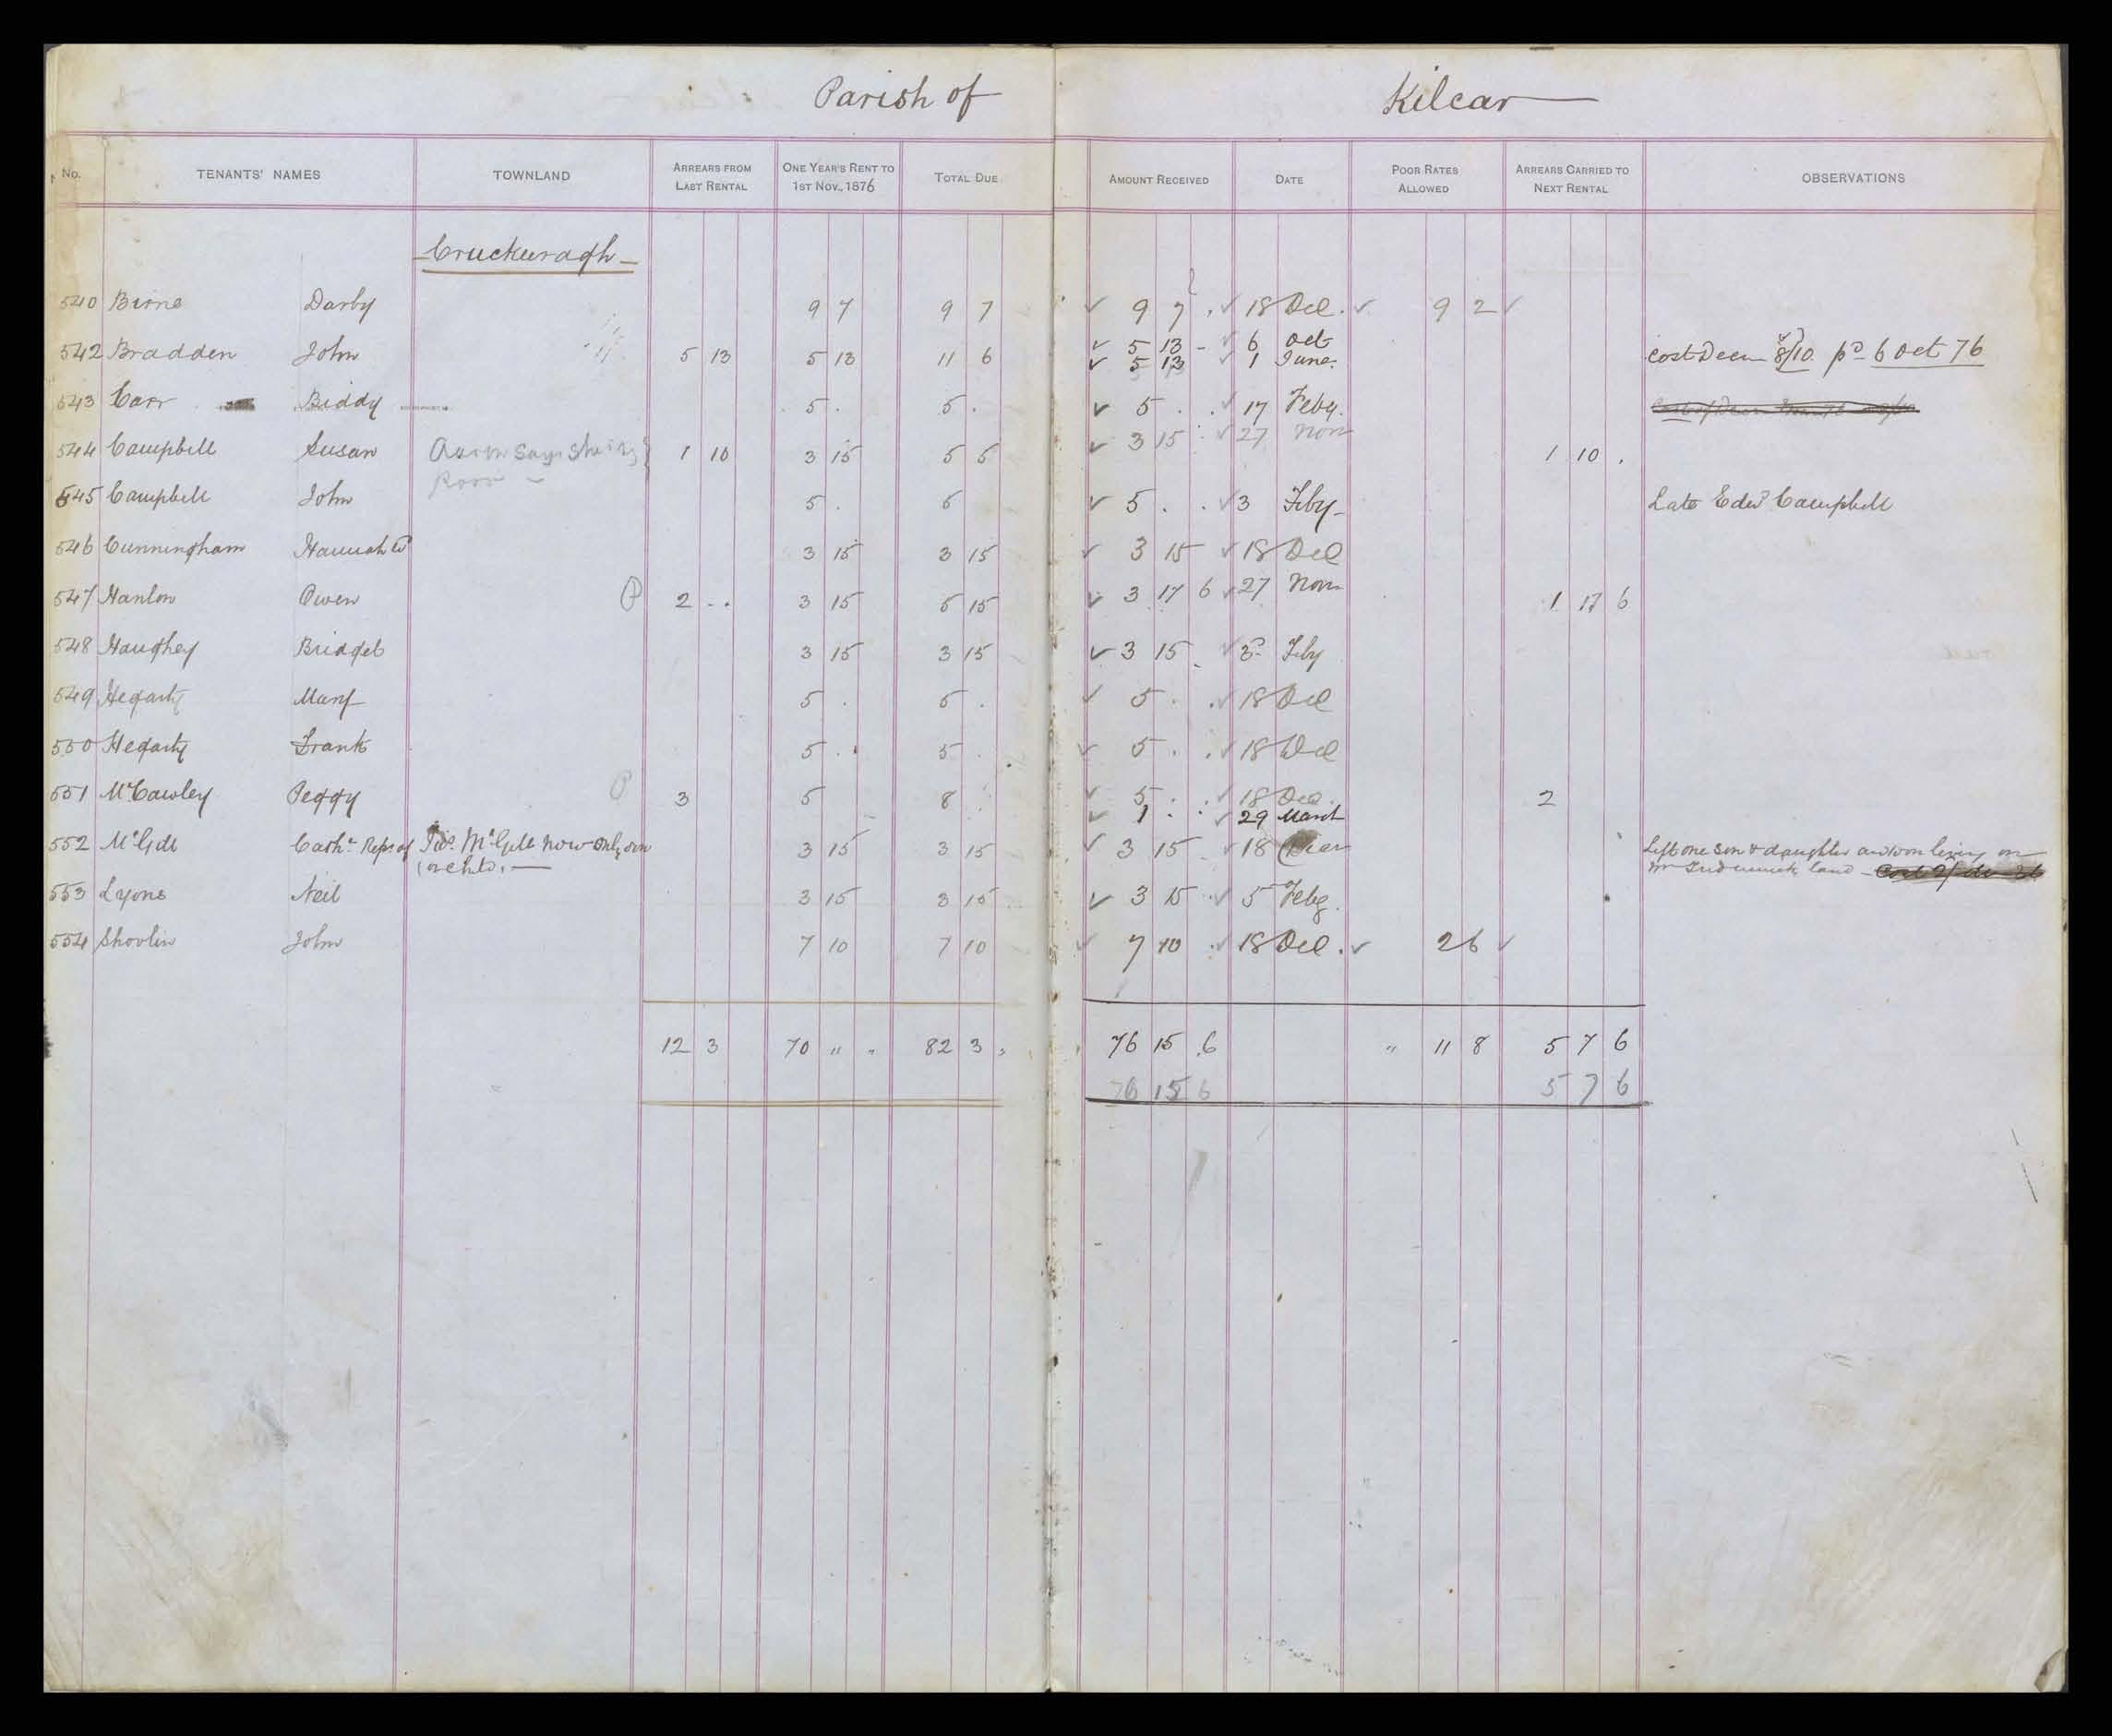 Parish of Kilcar
No. TENANTS' NAMES TOWNLAND ARREARS FROM LAST RENTAL ONE YEAR'S RENT TO 1ST NOV., 1876 TOTAL DUE AMOUNT RECEIVED DATE POOR RATES ALLOWED ARREARS CARRIED TO NEXT RENTAL OBSERVATIONS
Cruckeeragh
540 Birne Darby 9 7 9 7 9 7 . 18 Dec. 9 2
542 Bradden John 5 13 5 13 11 6 5 13 - 6 Oct Cost Decree 8/10 pd 6 Oct 76
5 13 1 June.
543 Carr Biddy 5 . 5 . 5 . . 17 Feby.
544 Campbell Susan says 1 10 3 15 5 5 3 15 27 Nov 1 10 .
Poor
545 Campbell John 5 . 5 5 . . 3 Feby Late Edwd Campbell
546 Cunningham Hannah W 3 15 3 15 3 15 18 Dec
547 Hanlon Owen P 2 . . 3 15 5 15 3 17 6 27 Nov 1 17 6
548 Haughey Bridget 3 15 3 15 3 15 3 Feby
549 Hegarty Mary 5 . 5 . 5 . . 18 Dec
550 Hegarty Frank 5 . . 5 . 5 . . 18 Dec
551 McCawley Peggy P 3 5 8 5 . . 18 Dec. 2
1 . . 29 March
552 McGill Cathe Reps of McGill now only son 3 15 3 15 3 15 18 Left one son & daughter and son living on
land -
553 Lyons Neil 3 15 3 15 3 15 5 Feby.
554 Shovlin John 7 10 7 10 7 10 18 Dec. 2 6
12 3 70 " " 82 3 " 76 15 6 " 11 8 5 7 6
76 15 6 5 7 6